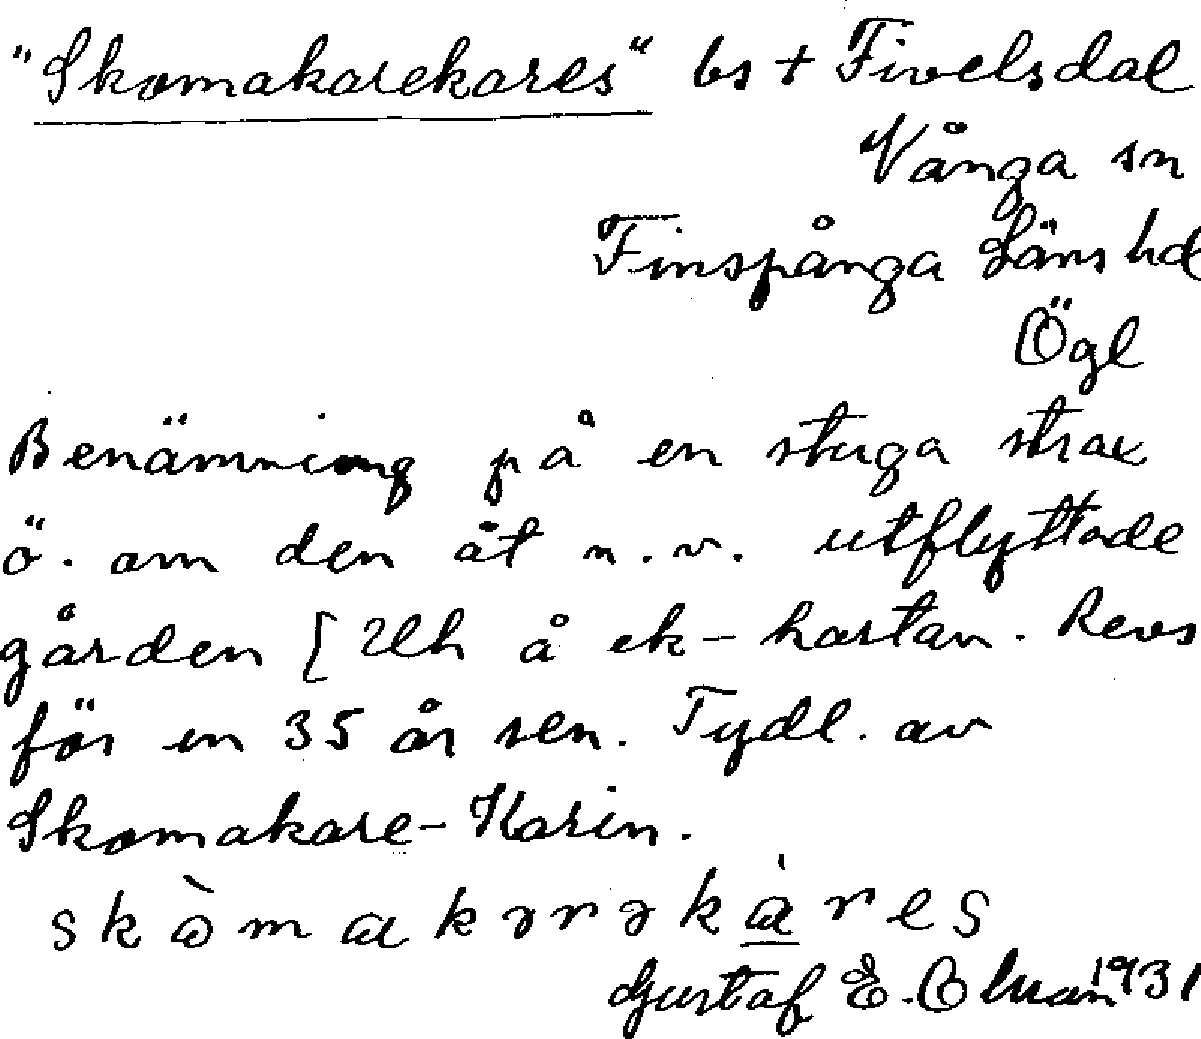 "Skomakarekares" bs + Fivelsdal
Vånga sn
Finspånga Läns hd
Ögl
Benämning på en stuga strax
ö. om den åt n.v. utflyttade
gården [Uh å ek-kartan. Revs
för en 35 år sen. Tydl. av
Skomakare-Karin.
skòmakərəkáres
Gustaf E.
1931